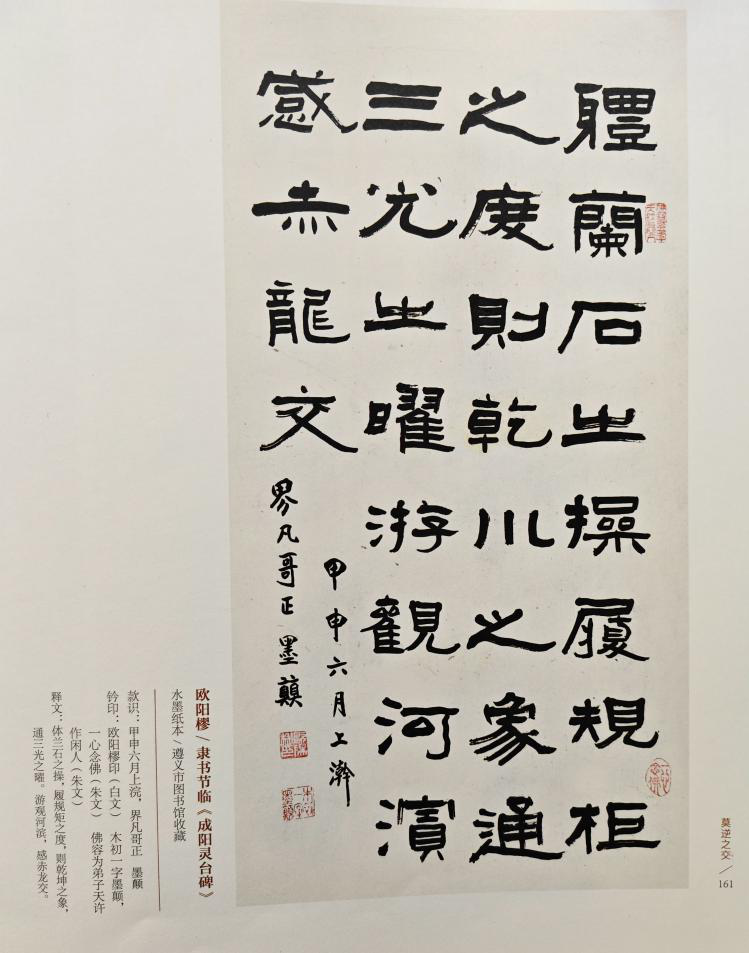 軆蘭石之操履規柜
之度則乾川之象通
三光之曜游觀河濱
感赤龍交
甲申六月上澣
界凡哥正 墨顛
欧阳樛/隶书节临《成阳灵台碑》
水墨纸本 遵义市图书馆收藏
款识：甲申六月上浣，界凡哥正 墨颠
钤印：欧阳樛印（白文） 木初一字墨颠，
一心念佛（朱文） 佛容为弟子天许
作闲人（朱文）
释文：体兰石之操，履规矩之度，则乾坤之象，
通三光之曜。游观河滨，感赤龙交。
莫逆之交/161